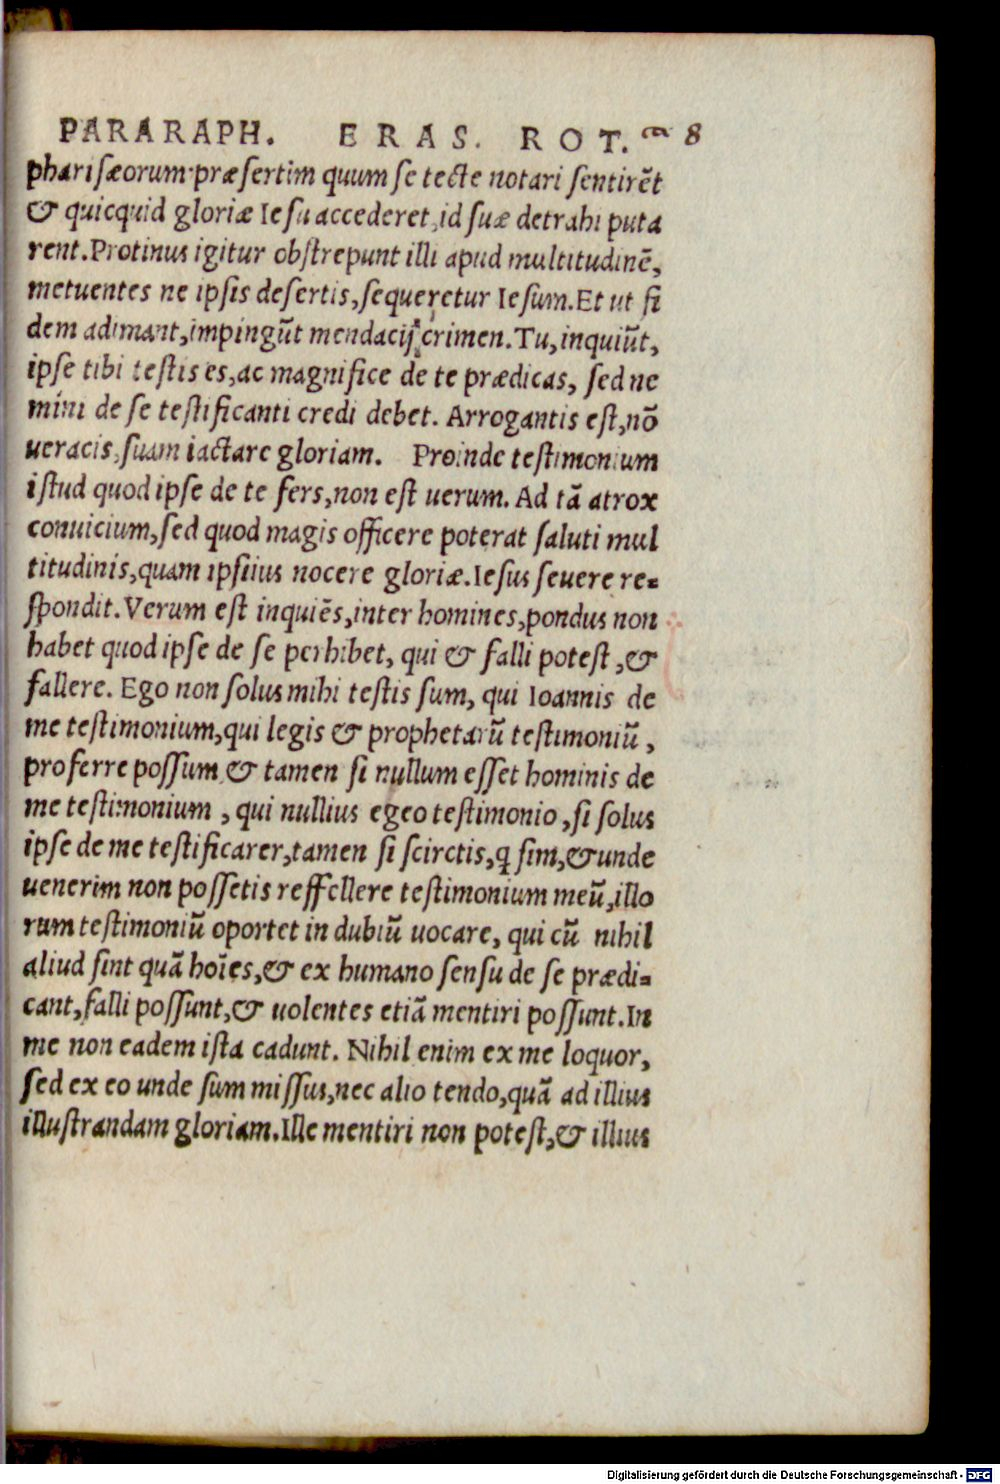 PARARAPH. ERAS. ROT. 8
pharisæorum præsertim quum se tecte notari sentirēt
& quicquid gloriæ Iesu accederet, id suæ detrahi puta
rent. Protinus igitur obstrepunt illi apud multitudinē,
metuentes ne ipsis desertis, sequeretur Iesum. Et ut fi
dem adimant, impingūt mendacij crimen. Tu, inquiūt,
ipse tibi testis es, ac magnifice de te prædicas, sed ne
mini de se testificanti credi debet. Arrogantis est, nō
ueracis, suam iactare gloriam. Proinde testimonium
istud quod ipse de te fers, non est uerum. Ad tā atrox
conuicium, sed quod magis officere poterat saluti mul
titudinis, quam ipsius nocere gloriæ. Iesus seuere re=
spondit. Verum est inquiēs, inter homines, pondus non
habet quod ipse de se perhibet, qui & falli potest, &
fallere. Ego non solus mihi testis sum, qui Ioannis de
me testimonium, qui legis & prophetarū testimoniū,
proferre possum & tamen si nullum esset hominis de
me testimonium, qui nullius egeo testimonio, si solus
ipse de me testificarer, tamen si sciretis, q̨ sim, & unde
uenerim non possetis reffellere testimonium meū, illo
rum testimoniū oportet in dubiū uocare, qui cū nihil
aliud sint quā hoīes, & ex humano sensu de se prædi=
cant, falli possunt, & uolentes etiā mentiri possunt. In
me non eadem ista cadunt. Nihil enim ex me loquor,
sed ex eo unde sum missus, nec alio tendo, quā ad illius
illustrandam gloriam. Ille mentiri non potest, & illius
Digitalisierung gefördert durch die Deutsche Forschungsgemeinschaft - DFG